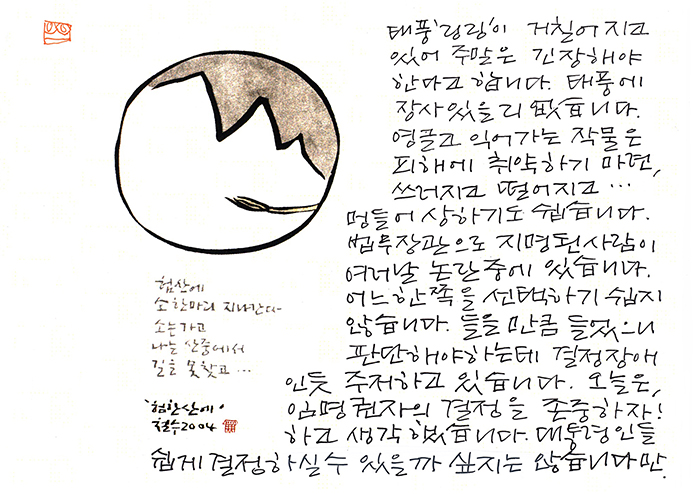 태풍'링링'이 거칠어지고
있어 주말은 긴장해야
한다고 합니다. 태풍에
장사있을리 없습니다.
영글고 익어가는 작물은
피해에 취약하기 마련,
쓰러지고 떨어지고…
멍들어 상하기도 쉽습니다.
법무장관으로 지명된사람이
여러날 논란중에 있습니다.
어느한쪽을 선택하기 쉽지
않습니다. 들을만큼 들었으니
판단해야하는데 결정장애
인듯 주저하고 있습니다. 오늘은,
임명권자의 결정을 존중하자!
하고 생각했습니다. 대통령인들
쉽게 결정하실수 있을까 싶지는 않습니다만.
험산에
소한마리 지나간다
소는가고
나는 산중에서
길을 못찾고…
'험한산에'
철수2004